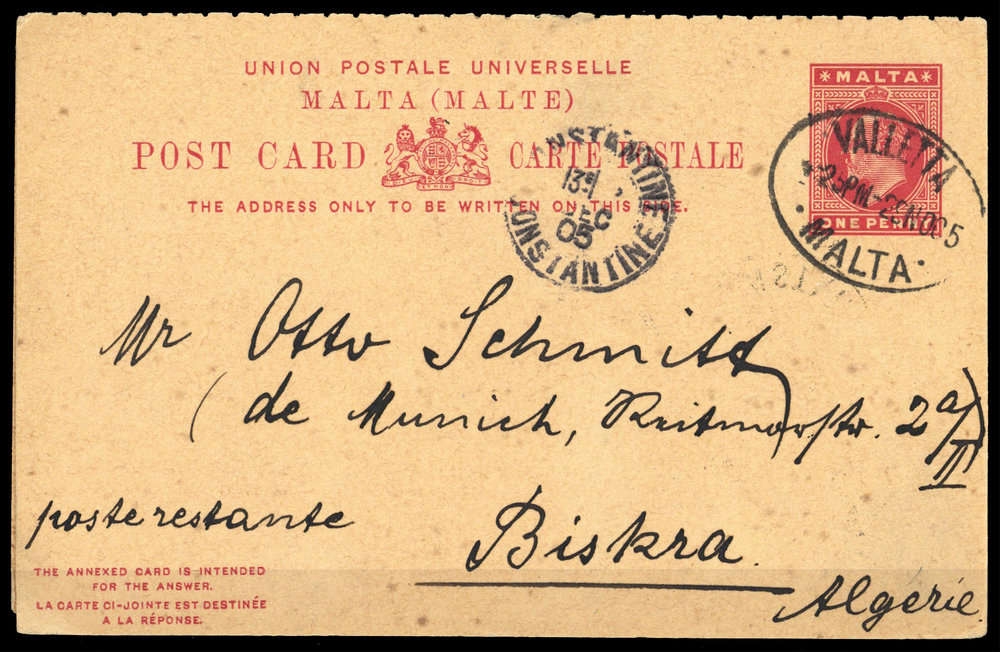 UNION POSTALE UNIVERSELLE
MALTA (MALTE)
POST CARD CARTE POSTALE
THE ADDRESS ONLY TO BE WRITTEN ON THIS SIDE.
MALTA
ONE PENNY
VALLETTA
MALTA
CONSTANTINE
DEC
05
CONSTANTINE
Mr Otto Schmitt
(de Munich, Reitmorstr. 2a/II)
poste restante
Biskra
Algérie
THE ANNEXED CARD IS INTENDED
FOR THE ANSWER.
LA CARTE CI-JOINTE EST DESTINÉE
A LA RÉPONSE.